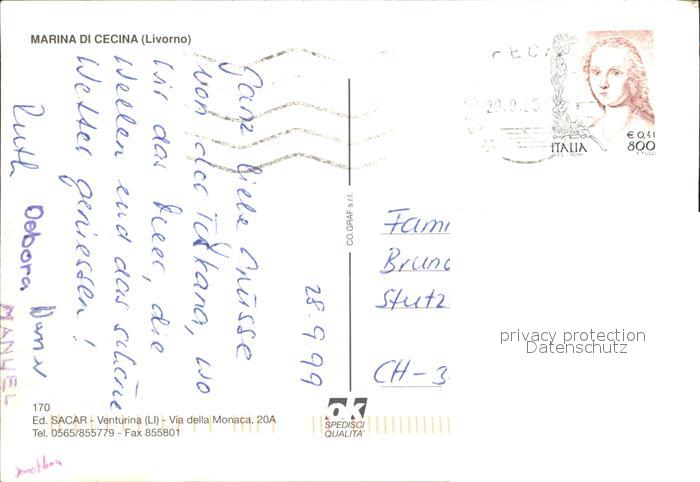 MARINA DI CECINA (Livorno)
28.9.99
Ganz liebe Grüsse
von der Toskana, wo
wir das Meer, die
Wellen und das schöne
Wetter geniessen!
Ruth Debora
MANUEL
Jonathan
170
Ed. SACAR - Venturina (LI) - Via della Monaca, 20A
Tel. 0565/855779 - Fax 855801
CO.GRAF s.r.l.
OK
SPEDISCI
QUALITA'
€ 0,41
ITALIA 800
Fami
Bruno
Stutz
CH-3
privacy protection
Datenschutz